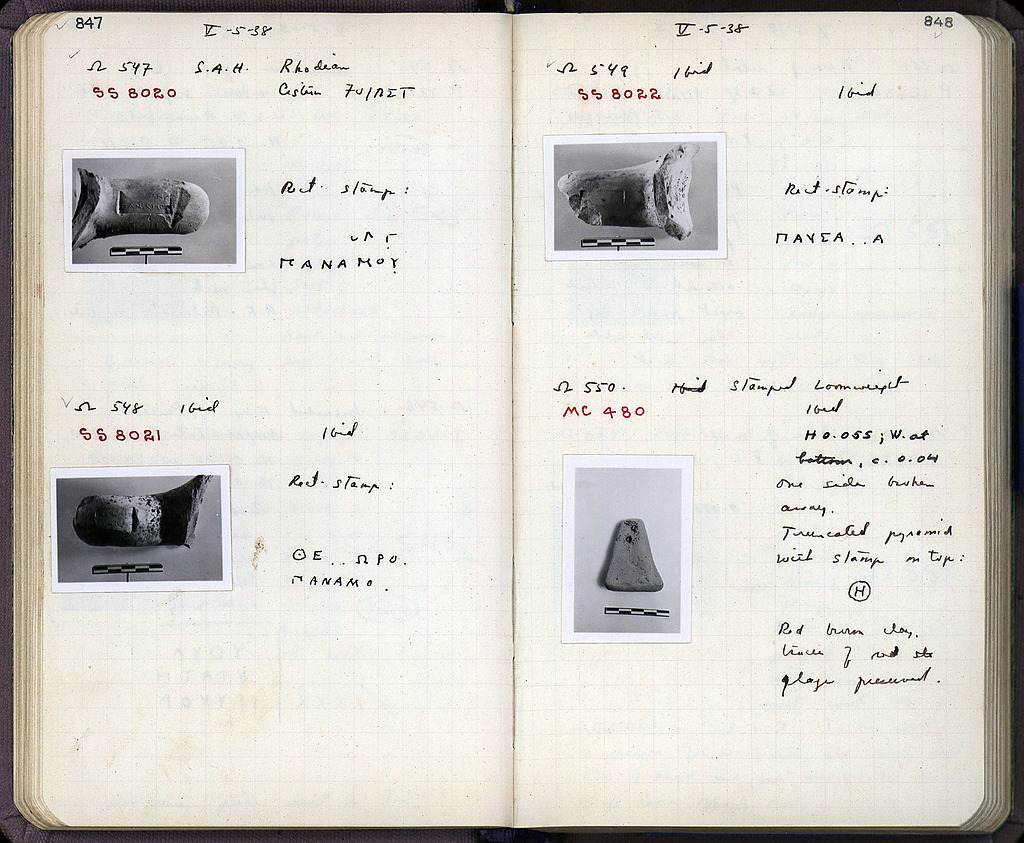 847
V-5-38
Ω 547 S.A.H. Rhodian
SS 8020 Cistern
Rect. stamp:
ΠΑΝΑΜΟΥ
Ω 548 Ibid
SS 8021 Ibid
Rect. stamp:
ΘΕ..ΩΡΟ.
ΠΑΝΑΜΟ.
848
V-5-38
Ω 549 Ibid
SS 8022 Ibid
Rect. stamp:
ΠΑΥΣΑ..Α
Ω 550. Ibid Stamped Loomweight
MC 480 Ibid
H 0.055; W. at
bottom, c. 0.04
One side broken
away.
Truncated pyramid
with stamp on top:
H
Red brown clay.
traces of red
glaze preserved.